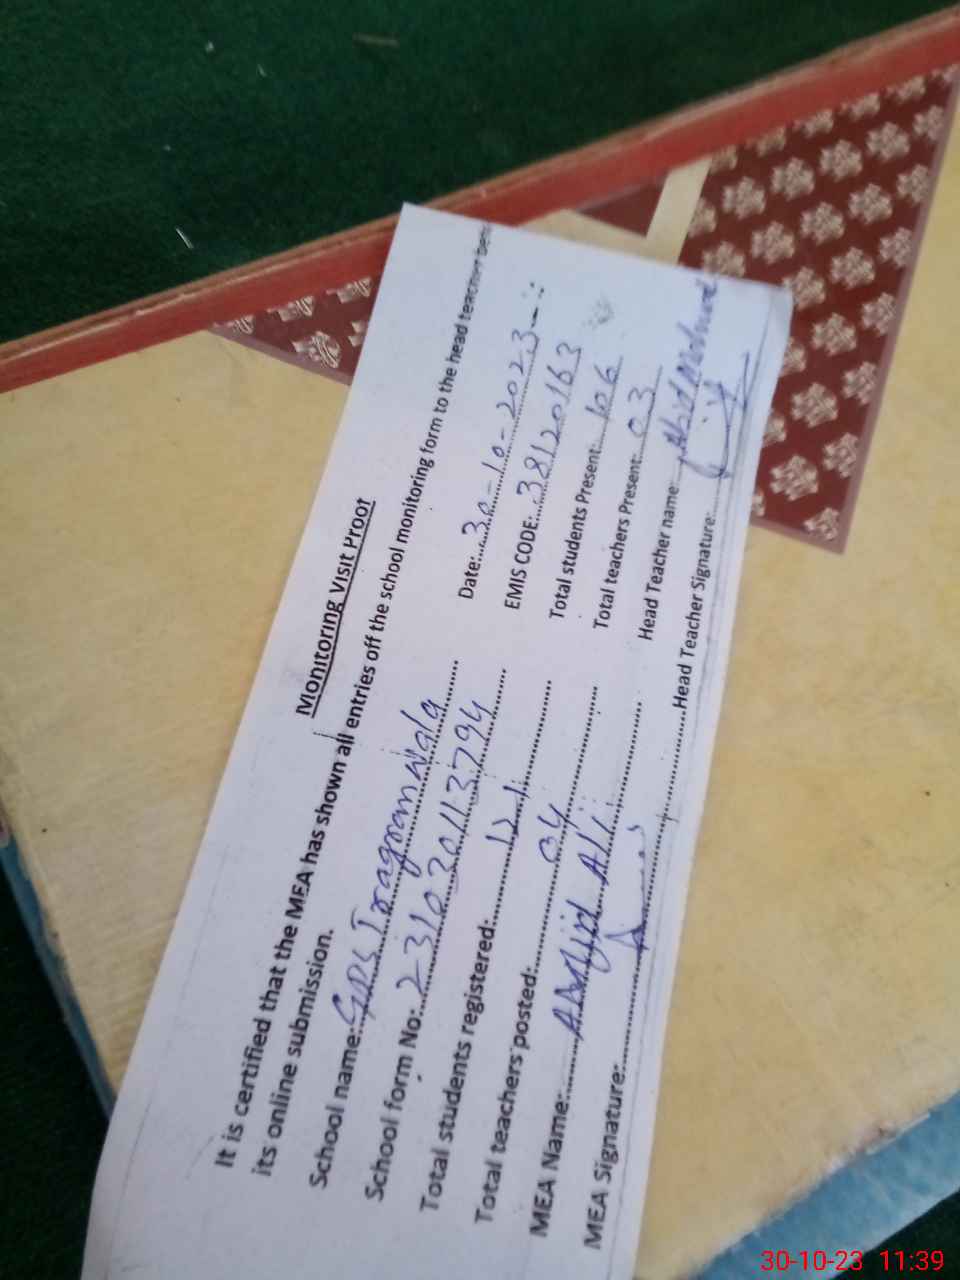 Monitoring Visit Proof
It is certified that the MEA has shown all entries off the school monitoring form to the head teacher
its online submission.
School name: GPS Iragramwala Date: 30-10-2023
School form No: 2310302011 3794 EMIS CODE: 38120163
Total students registered: 121 Total students Present: 106
Total teachers posted: 04 Total teachers Present: 03
MEA Name: AMJid Ali Head Teacher name:
MEA Signature: Head Teacher Signature:
30-10-23 11:39